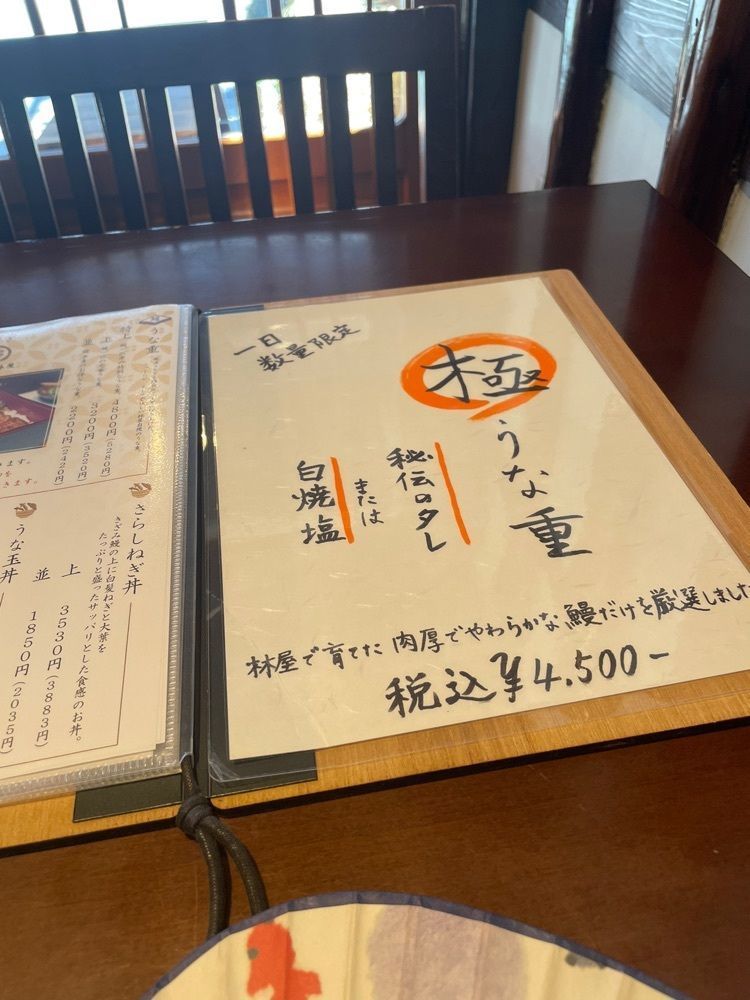 一日
数量限定
極
うな重
秘伝のタレ
または
白焼塩
林屋で育てた 肉厚でやわらかな鰻だけを厳選しました
税込¥4.500-
うな重
特上
4800円(5280円)
上
3200円(3520円)
並
2200円(2420円)
さらしねぎ丼
きざみ鰻の上に白髪ねぎと大葉を
たっぷりと盛ったサッパリとした食感のお丼。
上 3530円(3883円)
並 1850円(2035円)
うな玉丼